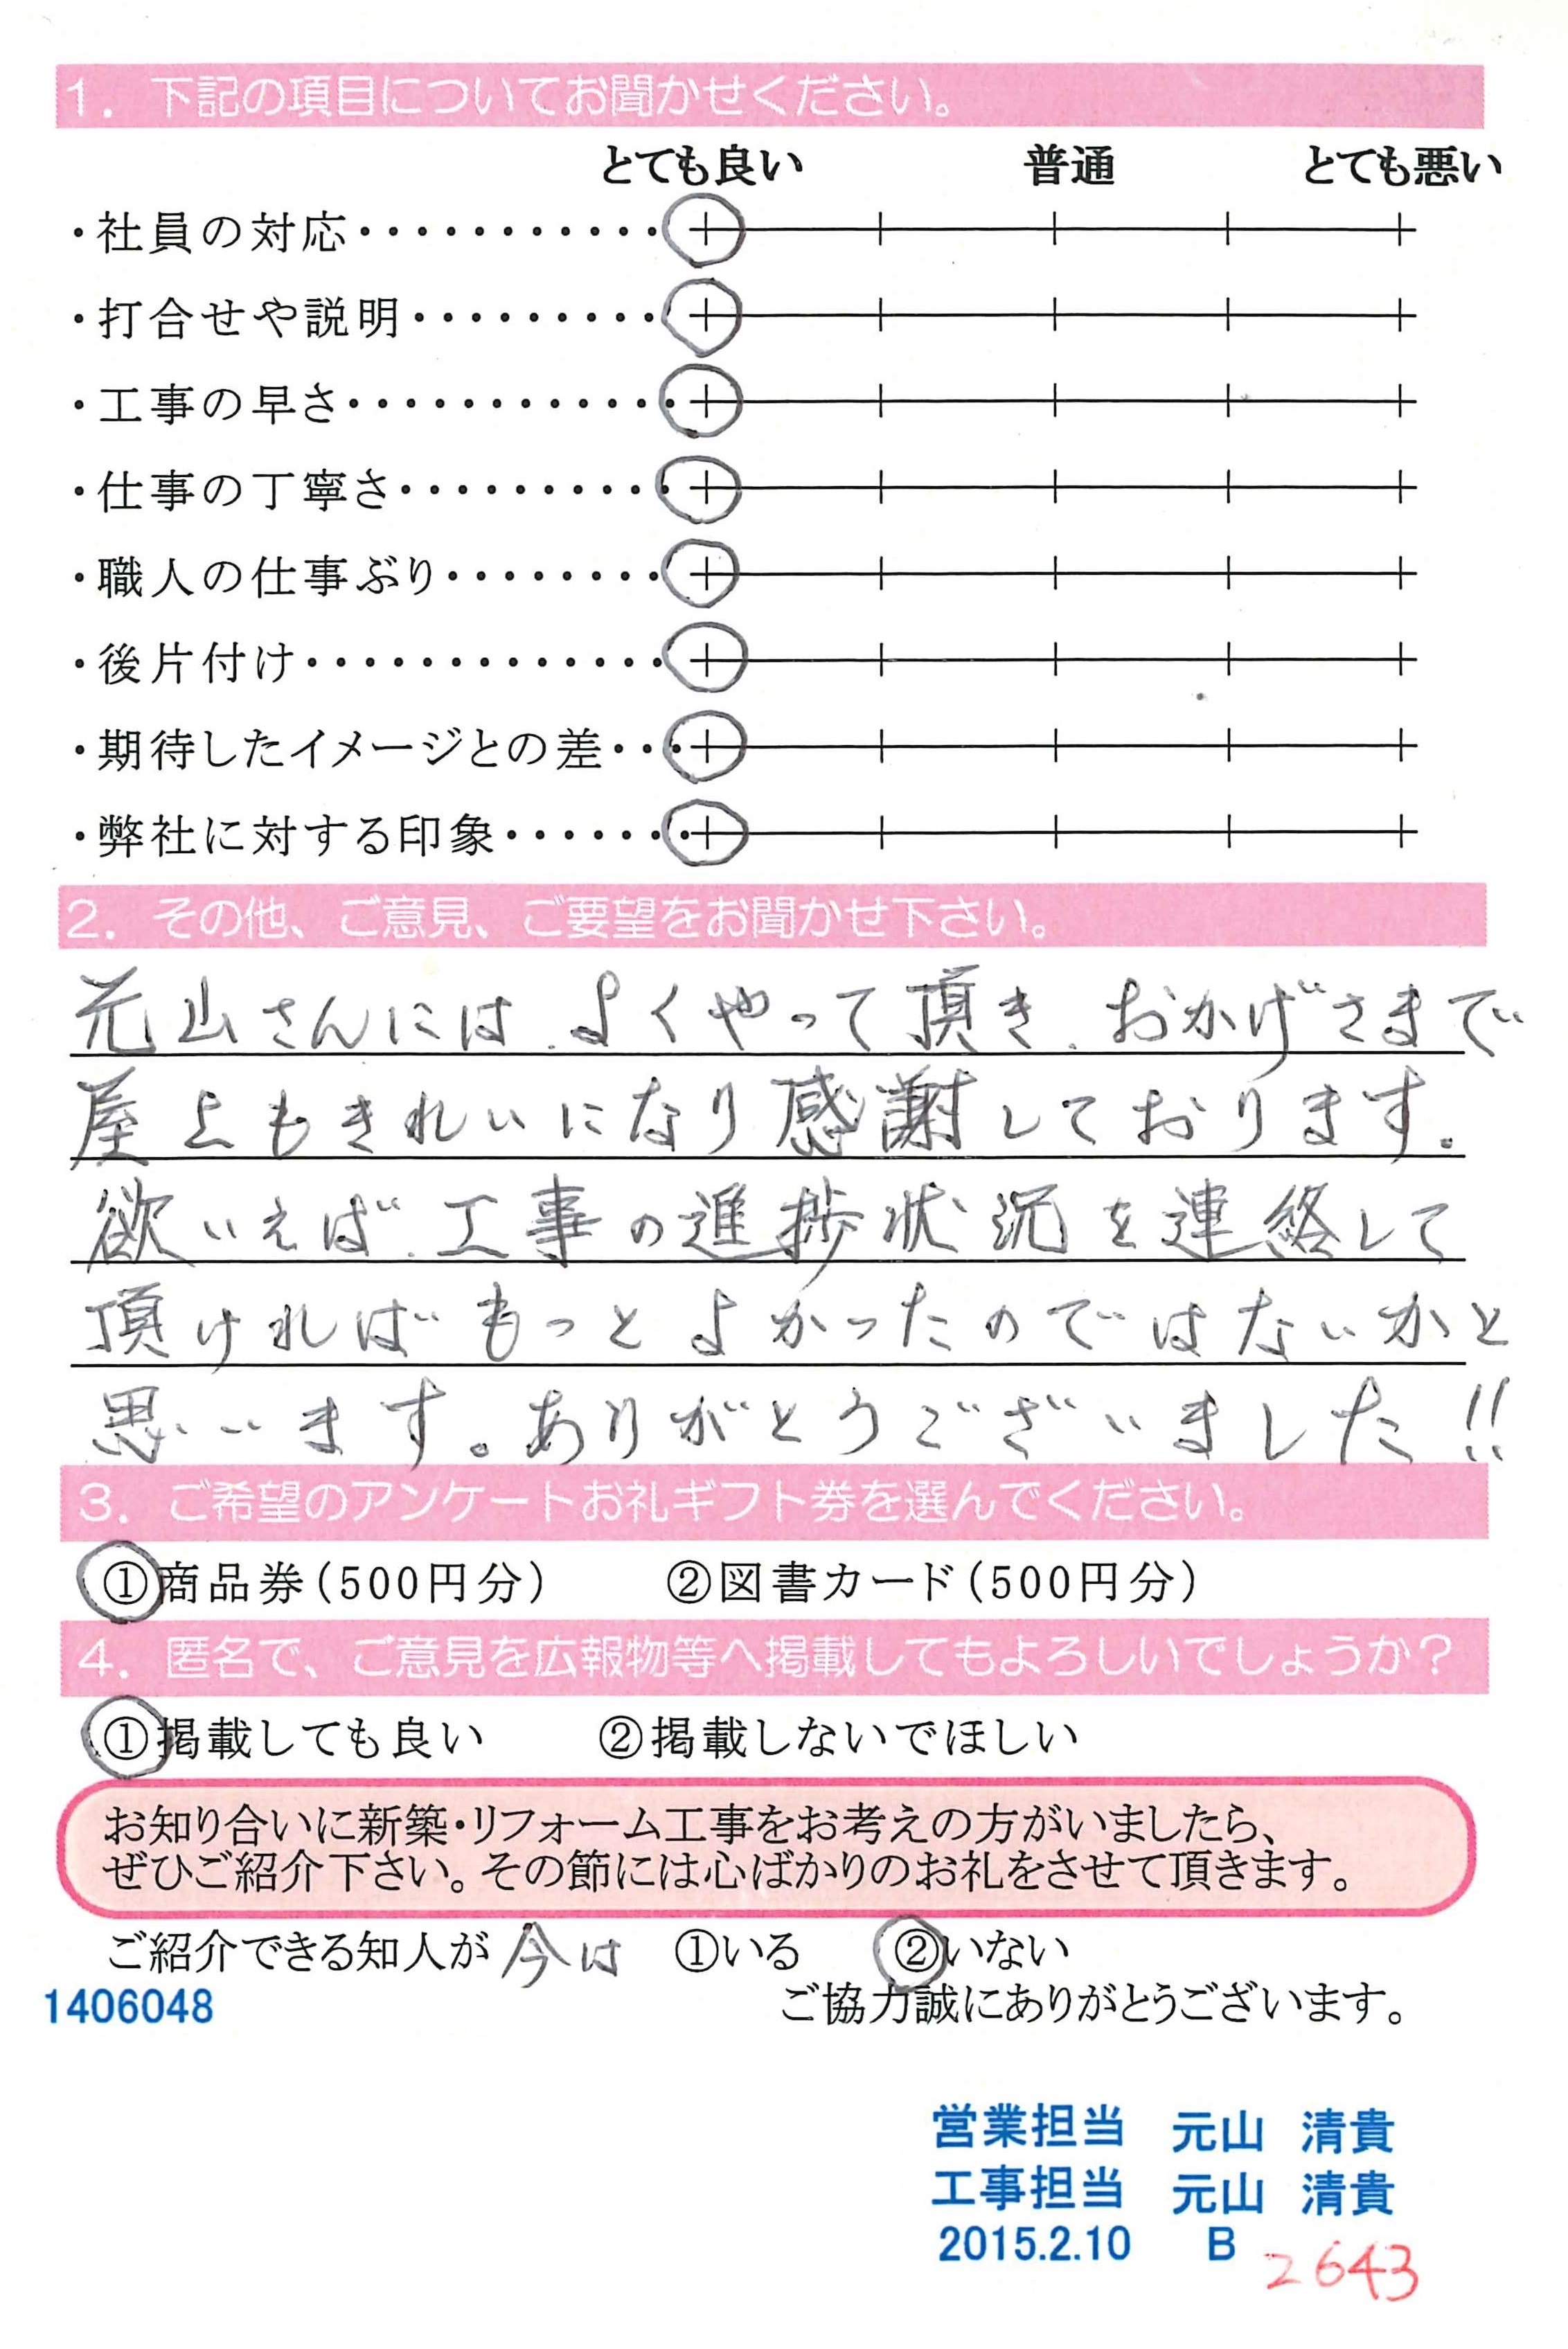 1. 下記の項目についてお聞かせください。
とても良い 普通 とても悪い
・社員の対応・・・・・・・・・・・
・打合せや説明・・・・・・・・・
・工事の早さ・・・・・・・・・・・・
・仕事の丁寧さ・・・・・・・・・・
・職人の仕事ぶり・・・・・・・・
・後片付け・・・・・・・・・・・・・
・期待したイメージとの差・・・
・弊社に対する印象・・・・・・・
2. その他、ご意見、ご要望をお聞かせ下さい。
元山さんには、よくやって頂き、おかげさまで
屋上もきれいになり感謝しております。
欲いえば、工事の進捗状況を連絡して
頂ければもっとよかったのではないかと
思います。ありがとうございました!!
3. ご希望のアンケートお礼ギフト券を選んでください。
①商品券(500円分) ②図書カード(500円分)
4. 匿名で、ご意見を広報物等へ掲載してもよろしいでしょうか?
①掲載しても良い ②掲載しないでほしい
お知り合いに新築・リフォーム工事をお考えの方がいましたら、
ぜひご紹介下さい。その節には心ばかりのお礼をさせて頂きます。
ご紹介できる知人が 今は ①いる ②いない
1406048 ご協力誠にありがとうございます。
営業担当 元山 清貴
工事担当 元山 清貴
2015.2.10 B 2643